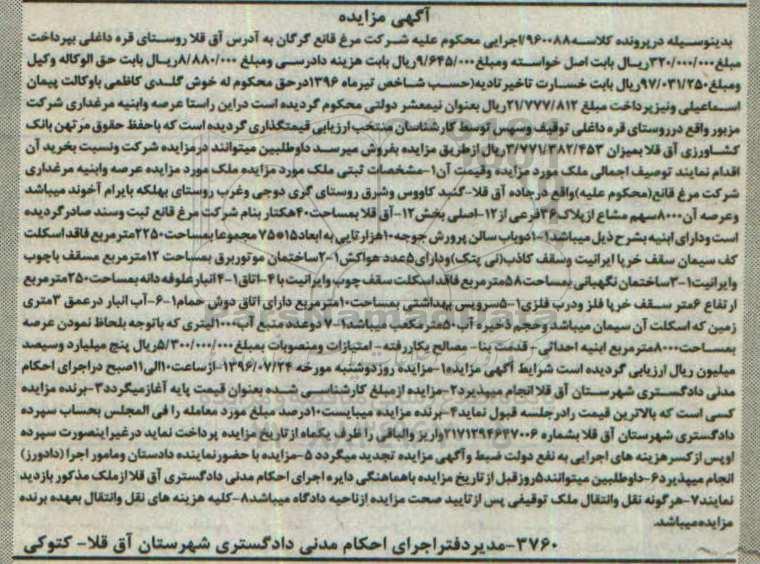 آگهی مزایده
بدینوسیله درپرونده کلاسه۹۶۰۰۸۸/اجرایی محکوم علیه شرکت مرغ قانع گرگان به آدرس آق قلا روستای قره داغلی بپرداخت
مبلغ۳۲۰/۰۰۰/۰۰۰ریال بابت اصل خواسته ومبلغ۹/۶۴۵/۰۰۰ریال بابت هزینه دادرسی ومبلغ۸/۸۸۰/۰۰۰ریال بابت حق الوکاله وکیل
ومبلغ۹۷/۰۳۱/۲۵۰ریال بابت خسارت تاخیر تادیه(حسب شاخص تیرماه ۱۳۹۶درحق محکوم له خوش گلدی کاظمی باوکالت پیمان
اسماعیلی ونیزپرداخت مبلغ ۲۱/۷۷۷/۸۱۳ریال بعنوان نیمعشر دولتی محکوم گردیده است دراین راستا عرصه وابنیه مرغداری شرکت
مزبور واقع درروستای قره داغلی توقیف وسپس توسط کارشناسان منتخب ارزیابی قیمتگذاری گردیده است که باحفظ حقوق مرتهن بانک
کشاورزی آق قلا بمیزان ۳/۷۷۱/۳۸۲/۴۵۳ریال ازطریق مزایده بفروش میرسد داوطلبین میتوانند درمزایده شرکت ونسبت بخرید آن
اقدام نمایند توصیف اجمالی ملک مورد مزایده وقیمت آن۱-مشخصات ثبتی ملک مورد مزایده ملک مورد مزایده عرصه وابنیه مرغداری
شرکت مرغ قانع(محکوم علیه)واقع درجاده آق قلا-گنبد کاووس وشرق روستای گری دوجی وغرب روستای بهلکه بایرام آخوند میباشد
وعرصه آن۸۰۰۰سهم مشاع ازپلاک۳۶فرعی از۱۲-اصلی بخش۱۲-آق قلا بمساحت۴۰هکتار بنام شرکت مرغ قانع ثبت وسند صادرگردیده
است ودارای ابنیه بشرح ذیل میباشد۱-۱دوباب سالن پرورش جوجه ۱۰هزارتایی به ابعاد۱۵*۷۵ مجموعا بمساحت۲۲۵۰مترمربع فاقد اسکلت
کف سیمان سقف خرپا ایرانیت وسقف کاذب(نی پتک)ودارای۵عدد هواکش۱-۲ساختمان موتوربرق بمساحت ۱۲مترمربع مسقف باچوب
وایرانیت۱-۳ساختمان نگهبانی بمساحت۵۸مترمربع فاقد اسکلت سقف چوب وایرانیت با۴-اتاق۱-۴انبارعلوفه دانه بمساحت۲۵۰مترمربع
ارتفاع ۶متر سقف خرپا فلز ودرب فلزی۱-۵سرویس بهداشتی بمساحت۱۰مترمربع دارای اتاق دوش حمام۱-۶-آب انبار درعمق ۳متری
زمین که اسکلت آن سیمان میباشد وحجم ذخیره آب۵۰متر مکعب میباشد۱-۷ دوعدد منبع آب۱۰۰۰لیتری که باتوجه بلحاظ نمودن عرصه
بمساحت۸۰۰۰مترمربع ابنیه احداثی- قدمت بنا- مصالح بکاررفته- امتیازات ومنصوبات بمبلغ۵/۳۰۰/۰۰۰/۰۰۰ریال پنج میلیارد وسیصد
میلیون ریال ارزیابی گردیده است شرایط آگهی مزایده۱-مزایده روزدوشنبه مورخه ۱۳۹۶/۰۷/۲۴-ازساعت۱۰الی۱۱صبح دراجرای احکام
مدنی دادگستری شهرستان آق قلا انجام میپذیرد۲-مزایده ازمبلغ کارشناسی شده بعنوان قیمت پایه آغازمیگردد۳-برنده مزایده
کسی است که بالاترین قیمت رادرجلسه قبول نماید۴-برنده مزایده میبایست۱۰درصد مبلغ مورد معامله را فی المجلس بحساب سپرده
دادگستری شهرستان آق قلا بشماره ۲۱۷۱۲۹۴۶۴۷۰۰۶واریز والباقی را ظرف یکماه ازتاریخ مزایده پرداخت نماید درغیراینصورت سپرده
اوپس ازکسرهزینه های اجرایی به نفع دولت ضبط وآگهی مزایده تجدید میگردد ۵-مزایده با حضورنماینده دادستان ومامور اجرا (دادورز)
انجام میپذیرد۶-داوطلبین میتوانند۵روزقبل ازتاریخ مزایده باهماهنگی دایره اجرای احکام مدنی دادگستری آق قلا ازملک مذکور بازدید
نمایند۷-هرگونه نقل وانتقال ملک توقیفی پس ازتایید صحت مزایده ازناحیه دادگاه میباشد۸-کلیه هزینه های نقل وانتقال بعهده برنده
مزایده میباشد.
۳۷۶۰-مدیردفتراجرای احکام مدنی دادگستری شهرستان آق قلا- کتوکی